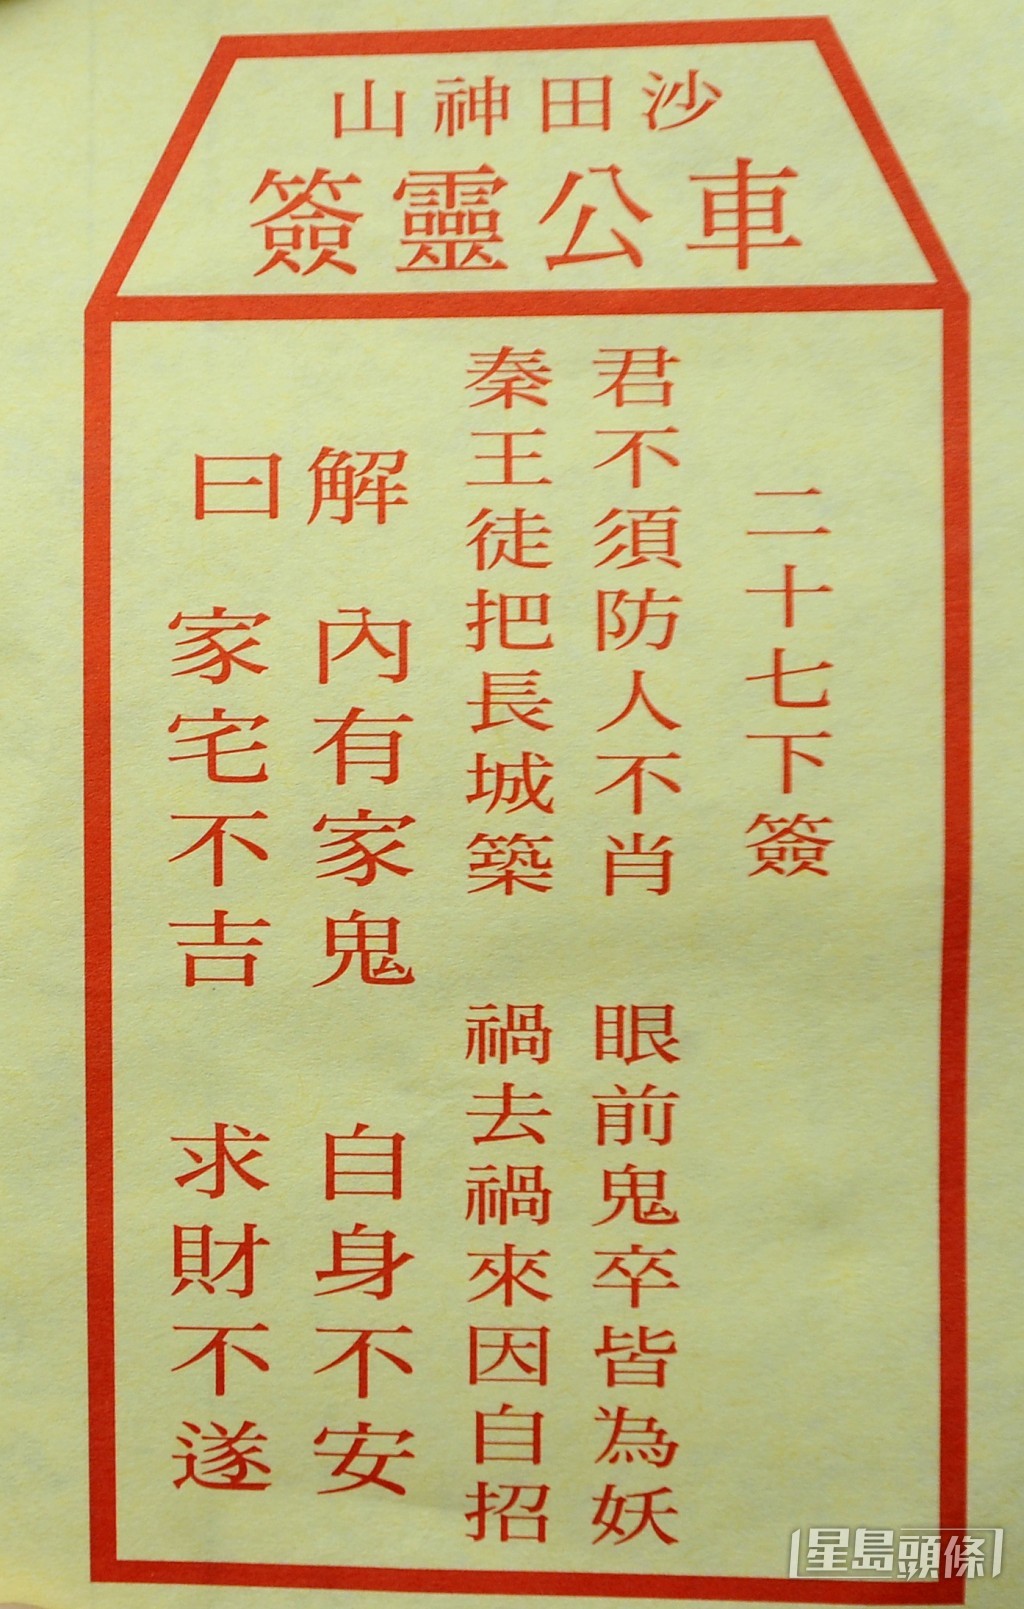 沙田神山
車公靈簽
二十七下簽
君不須防人不肖　眼前鬼卒皆為妖
秦王徒把長城築　禍去禍來因自招
解　內有家鬼　自身不安
曰　家宅不吉　求財不遂
星島頭條